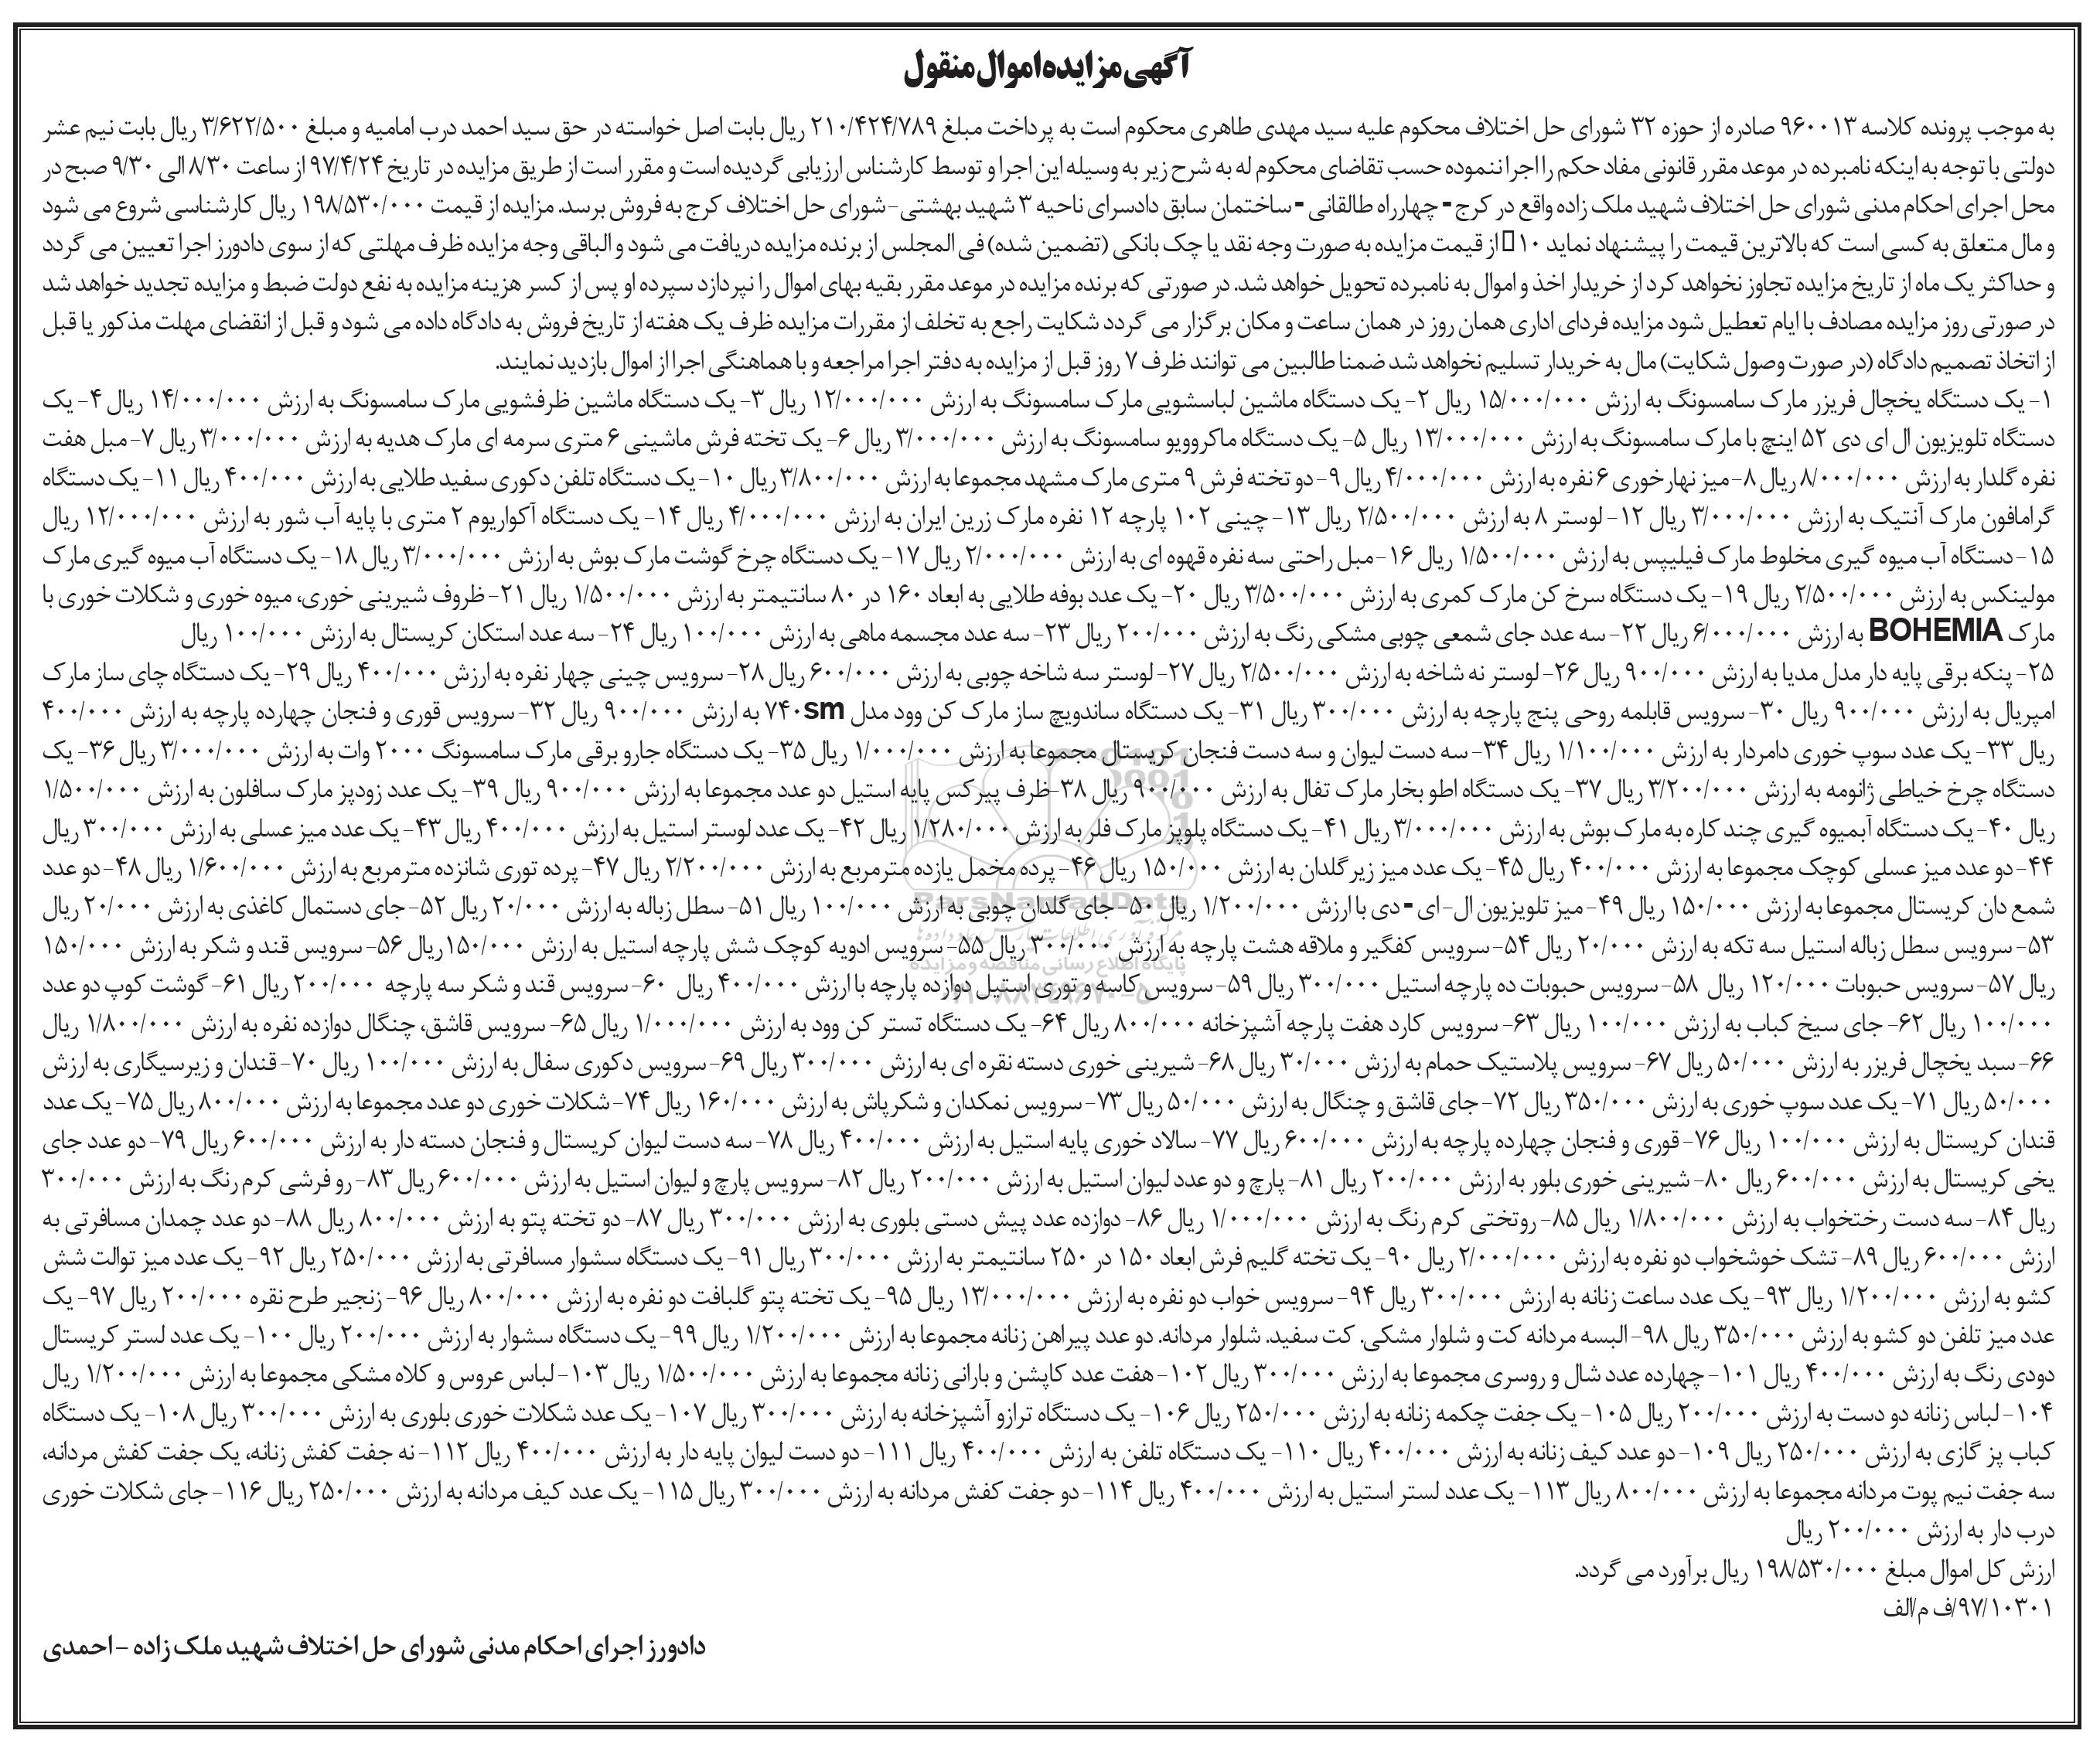 آگهی مزایده اموال منقول
به موجب پرونده کلاسه ۹۶۰۰۱۳ صادره از حوزه ۳۲ شورای حل اختلاف محکوم علیه سید مهدی طاهری محکوم است به پرداخت مبلغ ۲۱۰/۴۲۴/۷۸۹ ریال بابت اصل خواسته در حق سید احمد درب امامیه و مبلغ ۳/۶۲۲/۵۰۰ ریال بابت نیم عشر
دولتی با توجه به اینکه نامبرده در موعد مقرر قانونی مفاد حکم را اجرا ننموده حسب تقاضای محکوم له به شرح زیر به وسیله این اجرا و توسط کارشناس ارزیابی گردیده است و مقرر است از طریق مزایده در تاریخ ۹۷/۴/۲۴ از ساعت ۸/۳۰ الی ۹/۳۰ صبح در
محل اجرای احکام مدنی شورای حل اختلاف شهید ملک زاده واقع در کرج - چهارراه طالقانی - ساختمان سابق دادسرای ناحیه ۳ شهید بهشتی-شورای حل اختلاف کرج به فروش برسد. مزایده از قیمت ۱۹۸/۵۳۰/۰۰۰ ریال کارشناسی شروع می شود
و مال متعلق به کسی است که بالاترین قیمت را پیشنهاد نماید ۱۰ از قیمت مزایده به صورت وجه نقد یا چک بانکی (تضمین شده) فی المجلس از برنده مزایده دریافت می شود و الباقی وجه مزایده ظرف مهلتی که از سوی دادورز اجرا تعیین می گردد
و حداکثر یک ماه از تاریخ مزایده تجاوز نخواهد کرد از خریدار اخذ و اموال به نامبرده تحویل خواهد شد. در صورتی که برنده مزایده در موعد مقرر بقیه بهای اموال را نپردازد سپرده او پس از کسر هزینه مزایده به نفع دولت ضبط و مزایده تجدید خواهد شد
در صورتی روز مزایده مصادف با ایام تعطیل شود مزایده فردای اداری همان روز در همان ساعت و مکان برگزار می گردد شکایت راجع به تخلف از مقررات مزایده ظرف یک هفته از تاریخ فروش به دادگاه داده می شود و قبل از انقضای مهلت مذکور یا قبل
از اتخاذ تصمیم دادگاه (در صورت وصول شکایت) مال به خریدار تسلیم نخواهد شد ضمنا طالبین می توانند ظرف ۷ روز قبل از مزایده به دفتر اجرا مراجعه و با هماهنگی اجرا از اموال بازدید نمایند.
۱- یک دستگاه یخچال فریزر مارک سامسونگ به ارزش ۱۵/۰۰۰/۰۰۰ ریال ۲- یک دستگاه ماشین لباسشویی مارک سامسونگ به ارزش ۱۲/۰۰۰/۰۰۰ ریال ۳- یک دستگاه ماشین ظرفشویی مارک سامسونگ به ارزش ۱۴/۰۰۰/۰۰۰ ریال ۴- یک
دستگاه تلویزیون ال ای دی ۵۲ اینچ با مارک سامسونگ به ارزش ۱۳/۰۰۰/۰۰۰ ریال ۵- یک دستگاه ماکروویو سامسونگ به ارزش ۳/۰۰۰/۰۰۰ ریال ۶- یک تخته فرش ماشینی ۶ متری سرمه ای مارک هدیه به ارزش ۳/۰۰۰/۰۰۰ ریال ۷- مبل هفت
نفره گلدار به ارزش ۸/۰۰۰/۰۰۰ ریال ۸- میز نهارخوری ۶ نفره به ارزش ۴/۰۰۰/۰۰۰ ریال ۹- دو تخته فرش ۹ متری مارک مشهد مجموعا به ارزش ۳/۸۰۰/۰۰۰ ریال ۱۰- یک دستگاه تلفن دکوری سفید طلایی به ارزش ۴۰۰/۰۰۰ ریال ۱۱- یک دستگاه
گرامافون مارک آنتیک به ارزش ۳/۰۰۰/۰۰۰ ریال ۱۲- لوستر ۸ به ارزش ۲/۵۰۰/۰۰۰ ریال ۱۳- چینی ۱۰۲ پارچه ۱۲ نفره مارک زرین ایران به ارزش ۴/۰۰۰/۰۰۰ ریال ۱۴- یک دستگاه آکواریوم ۲ متری با پایه آب شور به ارزش ۱۲/۰۰۰/۰۰۰ ریال
۱۵- دستگاه آب میوه گیری مخلوط مارک فیلیپس به ارزش ۱/۵۰۰/۰۰۰ ریال ۱۶- مبل راحتی سه نفره قهوه ای به ارزش ۲/۰۰۰/۰۰۰ ریال ۱۷- یک دستگاه چرخ گوشت مارک بوش به ارزش ۳/۰۰۰/۰۰۰ ریال ۱۸- یک دستگاه آب میوه گیری مارک
مولینکس به ارزش ۲/۵۰۰/۰۰۰ ریال ۱۹- یک دستگاه سرخ کن مارک کمری به ارزش ۳/۵۰۰/۰۰۰ ریال ۲۰- یک عدد بوفه طلایی به ابعاد ۱۶۰ در ۸۰ سانتیمتر به ارزش ۱/۵۰۰/۰۰۰ ریال ۲۱- ظروف شیرینی خوری، میوه خوری و شکلات خوری با
مارک BOHEMIA به ارزش ۶/۰۰۰/۰۰۰ ریال ۲۲- سه عدد جای شمعی چوبی مشکی رنگ به ارزش ۲۰۰/۰۰۰ ریال ۲۳- سه عدد مجسمه ماهی به ارزش ۱۰۰/۰۰۰ ریال ۲۴- سه عدد استکان کریستال به ارزش ۱۰۰/۰۰۰ ریال
۲۵- پنکه برقی پایه دار مدل مدیا به ارزش ۹۰۰/۰۰۰ ریال ۲۶- لوستر نه شاخه به ارزش ۲/۵۰۰/۰۰۰ ریال ۲۷- لوستر سه شاخه چوبی به ارزش ۶۰۰/۰۰۰ ریال ۲۸- سرویس چینی چهار نفره به ارزش ۴۰۰/۰۰۰ ریال ۲۹- یک دستگاه چای ساز مارک
امپریال به ارزش ۹۰۰/۰۰۰ ریال ۳۰- سرویس قابلمه روحی پنج پارچه به ارزش ۳۰۰/۰۰۰ ریال ۳۱- یک دستگاه ساندویچ ساز مارک کن وود مدل ۷۴۰sm به ارزش ۹۰۰/۰۰۰ ریال ۳۲- سرویس قوری و فنجان چهارده پارچه به ارزش ۴۰۰/۰۰۰
ریال ۳۳- یک عدد سوپ خوری دامردار به ارزش ۱/۱۰۰/۰۰۰ ریال ۳۴- سه دست لیوان و سه دست فنجان کریستال مجموعا به ارزش ۱/۰۰۰/۰۰۰ ریال ۳۵- یک دستگاه جارو برقی مارک سامسونگ ۲۰۰۰ وات به ارزش ۳/۰۰۰/۰۰۰ ریال ۳۶- یک
دستگاه چرخ خیاطی ژانومه به ارزش ۳/۲۰۰/۰۰۰ ریال ۳۷- یک دستگاه اطو بخار مارک تفال به ارزش ۹۰۰/۰۰۰ ریال ۳۸-ظرف پیرکس پایه استیل دو عدد مجموعا به ارزش ۹۰۰/۰۰۰ ریال ۳۹- یک عدد زودپز مارک سافلون به ارزش ۱/۵۰۰/۰۰۰
ریال ۴۰- یک دستگاه آبمیوه گیری چند کاره به مارک بوش به ارزش ۳/۰۰۰/۰۰۰ ریال ۴۱- یک دستگاه پلوپز مارک فلر به ارزش ۱/۲۸۰/۰۰۰ ریال ۴۲- یک عدد لوستر استیل به ارزش ۴۰۰/۰۰۰ ریال ۴۳- یک عدد میز عسلی به ارزش ۳۰۰/۰۰۰ ریال
۴۴- دو عدد میز عسلی کوچک مجموعا به ارزش ۴۰۰/۰۰۰ ریال ۴۵- یک عدد میز زیر گلدان به ارزش ۱۵۰/۰۰۰ ریال ۴۶- پرده مخمل یازده مترمربع به ارزش ۲/۲۰۰/۰۰۰ ریال ۴۷- پرده توری شانزده مترمربع به ارزش ۱/۶۰۰/۰۰۰ ریال ۴۸- دو عدد
شمع دان کریستال مجموعا به ارزش ۱۵۰/۰۰۰ ریال ۴۹- میز تلویزیون ال-ای -دی با ارزش ۱/۲۰۰/۰۰۰ ریال ۵۰- جای گلدان چوبی به ارزش ۱۰۰/۰۰۰ ریال ۵۱- سطل زباله به ارزش ۲۰/۰۰۰ ریال ۵۲- جای دستمال کاغذی به ارزش ۲۰/۰۰۰ ریال
۵۳- سرویس سطل زباله استیل سه تکه به ارزش ۲۰/۰۰۰ ریال ۵۴- سرویس کفگیر و ملاقه هشت پارچه به ارزش ۳۰۰/۰۰۰ ریال ۵۵- سرویس ادویه کوچک شش پارچه استیل به ارزش ۱۵۰/۰۰۰ریال ۵۶- سرویس قند و شکر به ارزش ۱۵۰/۰۰۰
ریال ۵۷- سرویس حبوبات ۱۲۰/۰۰۰ ریال ۵۸- سرویس حبوبات ده پارچه استیل ۳۰۰/۰۰۰ ریال ۵۹- سرویس کاسه و توری استیل دوازده پارچه با ارزش ۴۰۰/۰۰۰ ریال ۶۰- سرویس قند و شکر سه پارچه ۲۰۰/۰۰۰ ریال ۶۱- گوشت کوپ دو عدد
۱۰۰/۰۰۰ ریال ۶۲- جای سیخ کباب به ارزش ۱۰۰/۰۰۰ ریال ۶۳- سرویس کارد هفت پارچه آشپزخانه ۸۰۰/۰۰۰ ریال ۶۴- یک دستگاه تستر کن وود به ارزش ۱/۰۰۰/۰۰۰ ریال ۶۵- سرویس قاشق، چنگال دوازده نفره به ارزش ۱/۸۰۰/۰۰۰ ریال
۶۶- سبد یخچال فریزر به ارزش ۵۰/۰۰۰ ریال ۶۷- سرویس پلاستیک حمام به ارزش ۳۰/۰۰۰ ریال ۶۸- شیرینی خوری دسته نقره ای به ارزش ۳۰۰/۰۰۰ ریال ۶۹- سرویس دکوری سفال به ارزش ۱۰۰/۰۰۰ ریال ۷۰- قندان و زیرسیگاری به ارزش
۵۰/۰۰۰ ریال ۷۱- یک عدد سوپ خوری به ارزش ۳۵۰/۰۰۰ ریال ۷۲- جای قاشق و چنگال به ارزش ۵۰/۰۰۰ ریال ۷۳- سرویس نمکدان و شکرپاش به ارزش ۱۶۰/۰۰۰ ریال ۷۴- شکلات خوری دو عدد مجموعا به ارزش ۸۰۰/۰۰۰ ریال ۷۵- یک عدد
قندان کریستال به ارزش ۱۰۰/۰۰۰ ریال ۷۶- قوری و فنجان چهارده پارچه به ارزش ۶۰۰/۰۰۰ ریال ۷۷- سالاد خوری پایه استیل به ارزش ۴۰۰/۰۰۰ ریال ۷۸- سه دست لیوان کریستال و فنجان دسته دار به ارزش ۶۰۰/۰۰۰ ریال ۷۹- دو عدد جای
یخی کریستال به ارزش ۶۰۰/۰۰۰ ریال ۸۰- شیرینی خوری بلور به ارزش ۲۰۰/۰۰۰ ریال ۸۱- پارچ و دو عدد لیوان استیل به ارزش ۲۰۰/۰۰۰ ریال ۸۲- سرویس پارچ و لیوان استیل به ارزش ۶۰۰/۰۰۰ ریال ۸۳- رو فرشی کرم رنگ به ارزش ۳۰۰/۰۰۰
ریال ۸۴- سه دست رختخواب به ارزش ۱/۸۰۰/۰۰۰ ریال ۸۵- روتختی کرم رنگ به ارزش ۱/۰۰۰/۰۰۰ ریال ۸۶- دوازده عدد پیش دستی بلوری به ارزش ۳۰۰/۰۰۰ ریال ۸۷- دو تخته پتو به ارزش ۸۰۰/۰۰۰ ریال ۸۸- دو عدد چمدان مسافرتی به
ارزش ۶۰۰/۰۰۰ ریال ۸۹- تشک خوشخواب دو نفره به ارزش ۲/۰۰۰/۰۰۰ ریال ۹۰- یک تخته گلیم فرش ابعاد ۱۵۰ در ۲۵۰ سانتیمتر به ارزش ۳۰۰/۰۰۰ ریال ۹۱- یک دستگاه سشوار مسافرتی به ارزش ۲۵۰/۰۰۰ ریال ۹۲- یک عدد میز توالت شش
کشو به ارزش ۱/۲۰۰/۰۰۰ ریال ۹۳- یک عدد ساعت زنانه به ارزش ۳۰۰/۰۰۰ ریال ۹۴- سرویس خواب دو نفره به ارزش ۱۳/۰۰۰/۰۰۰ ریال ۹۵- یک تخته پتو گلبافت دو نفره به ارزش ۸۰۰/۰۰۰ ریال ۹۶- زنجیر طرح نقره ۲۰۰/۰۰۰ ریال ۹۷- یک
عدد میز تلفن دو کشو به ارزش ۳۵۰/۰۰۰ ریال ۹۸- البسه مردانه کت و شلوار مشکی. کت سفید. شلوار مردانه. دو عدد پیراهن زنانه مجموعا به ارزش ۱/۲۰۰/۰۰۰ ریال ۹۹- یک دستگاه سشوار به ارزش ۲۰۰/۰۰۰ ریال ۱۰۰- یک عدد لستر کریستال
دودی رنگ به ارزش ۴۰۰/۰۰۰ ریال ۱۰۱- چهارده عدد شال و روسری مجموعا به ارزش ۳۰۰/۰۰۰ ریال ۱۰۲- هفت عدد کاپشن و بارانی زنانه مجموعا به ارزش ۱/۵۰۰/۰۰۰ ریال ۱۰۳- لباس عروس و کلاه مشکی مجموعا به ارزش ۱/۲۰۰/۰۰۰ ریال
۱۰۴- لباس زنانه دو دست به ارزش ۲۰۰/۰۰۰ ریال ۱۰۵- یک جفت چکمه زنانه به ارزش ۲۵۰/۰۰۰ ریال ۱۰۶- یک دستگاه ترازو آشپزخانه به ارزش ۳۰۰/۰۰۰ ریال ۱۰۷- یک عدد شکلات خوری بلوری به ارزش ۳۰۰/۰۰۰ ریال ۱۰۸- یک دستگاه
کباب پز گازی به ارزش ۲۵۰/۰۰۰ ریال ۱۰۹- دو عدد کیف زنانه به ارزش ۴۰۰/۰۰۰ ریال ۱۱۰- یک دستگاه تلفن به ارزش ۴۰۰/۰۰۰ ریال ۱۱۱- دو دست لیوان پایه دار به ارزش ۴۰۰/۰۰۰ ریال ۱۱۲- نه جفت کفش زنانه، یک جفت کفش مردانه،
سه جفت نیم پوت مردانه مجموعا به ارزش ۸۰۰/۰۰۰ ریال ۱۱۳- یک عدد لستر استیل به ارزش ۴۰۰/۰۰۰ ریال ۱۱۴- دو جفت کفش مردانه به ارزش ۳۰۰/۰۰۰ ریال ۱۱۵- یک عدد کیف مردانه به ارزش ۲۵۰/۰۰۰ ریال ۱۱۶- جای شکلات خوری
درب دار به ارزش ۲۰۰/۰۰۰ ریال
ارزش کل اموال مبلغ ۱۹۸/۵۳۰/۰۰۰ ریال برآورد می گردد.
۹۷/۱۰۳۰۱/ف م/الف
دادورز اجرای احکام مدنی شورای حل اختلاف شهید ملک زاده - احمدی
ParsNamadData
پایگاه اطلاع رسانی مناقصه و مزایده